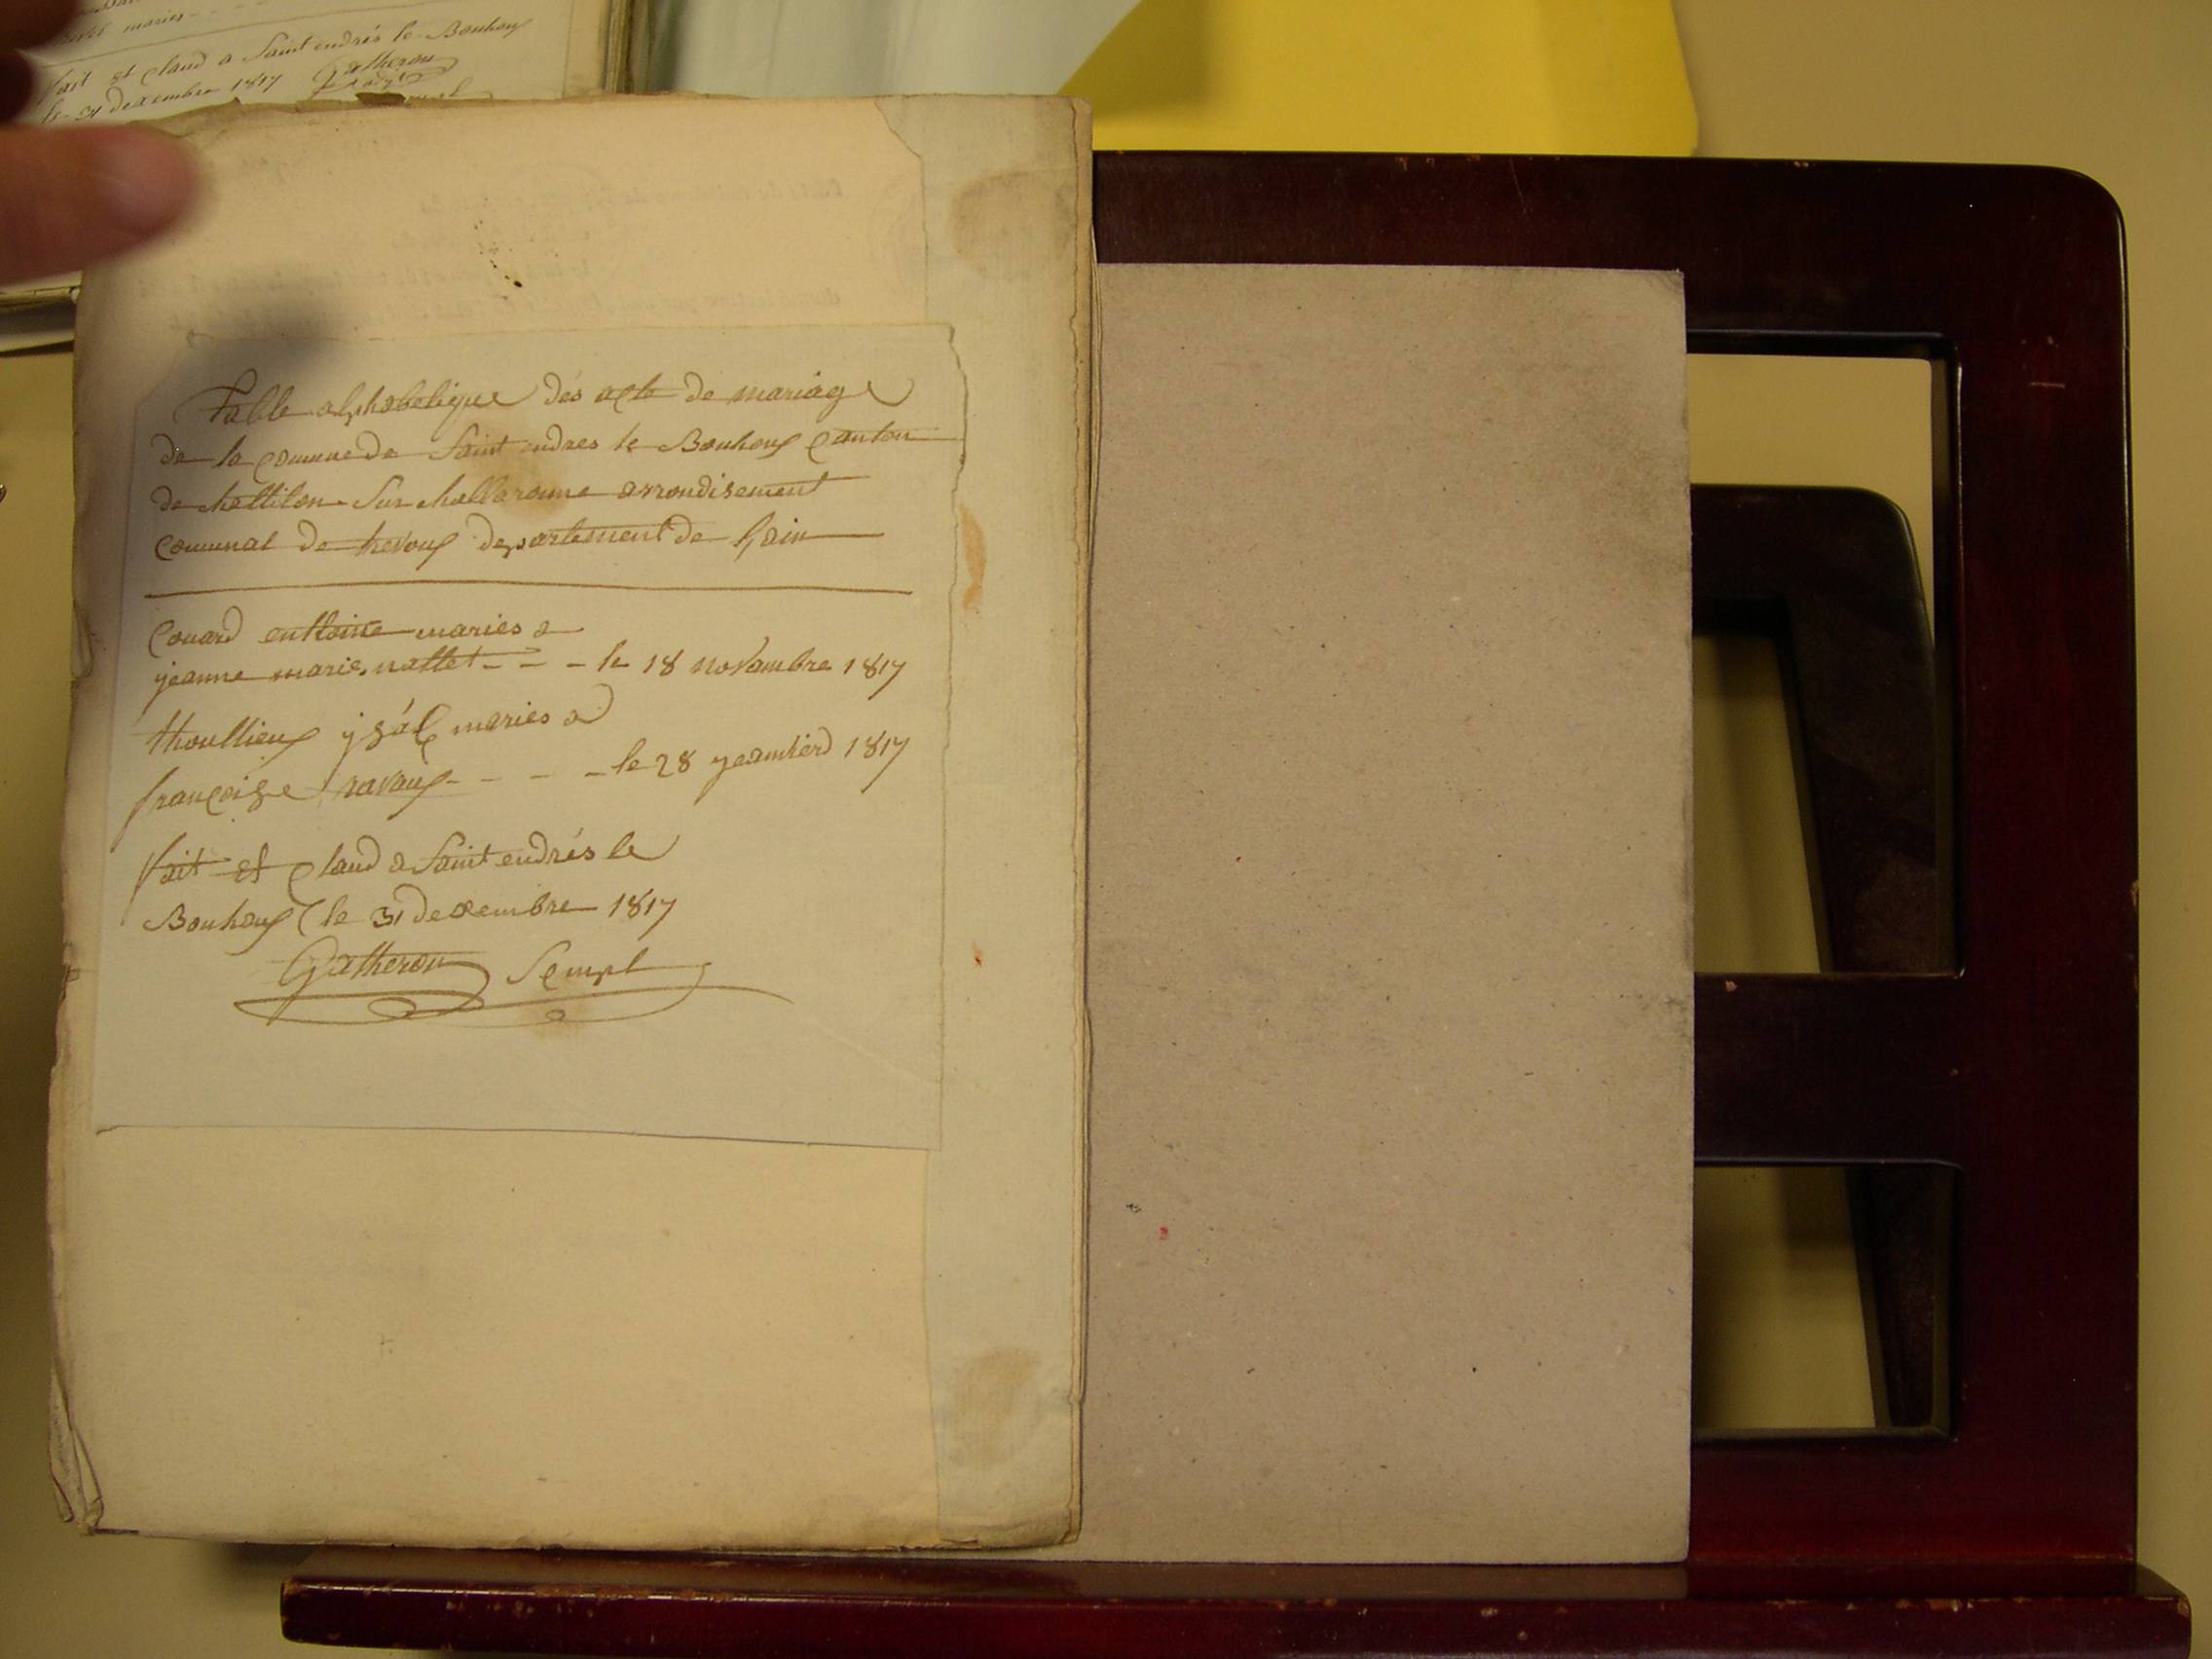 maries
fait et claud a Saint endrés le Bouhoux
le 31 decxembre 1817 Gatheron
Table alphabetique dés acte de mariage
de la comune de Saint endres le Bouhoux Canton
de chattilon sur challaronne arrondisement
Comunal de trevoux departement de lain
Couard enttoine maries a
jeanne marie nallet - - - le 18 novambre 1817
thoullieux maries a
françoise ravaux - - - le 28 jeanvierd 1817
fait et claud a Saint endrés le
Bouhoux le 31 decxembre 1817
Gatheron